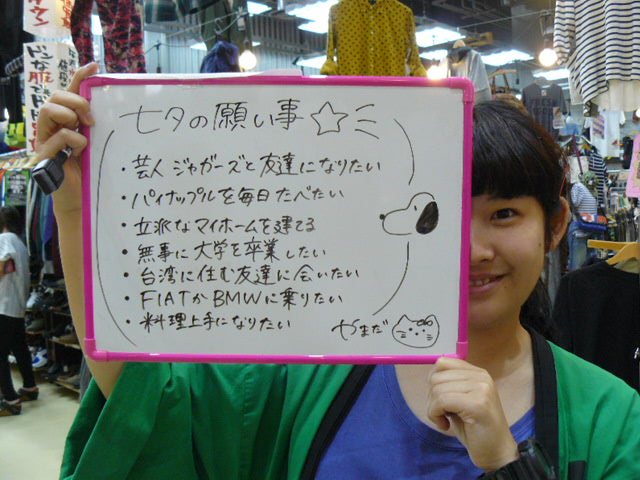 七夕の願い事☆
・芸人 ジャガーズと友達になりたい
・パイナップルを毎日たべたい
・立派なマイホームを建てる
・無事に大学を卒業したい
・台湾に住む友達に会いたい
・FIATかBMWに乗りたい
・料理上手になりたい
やまだ